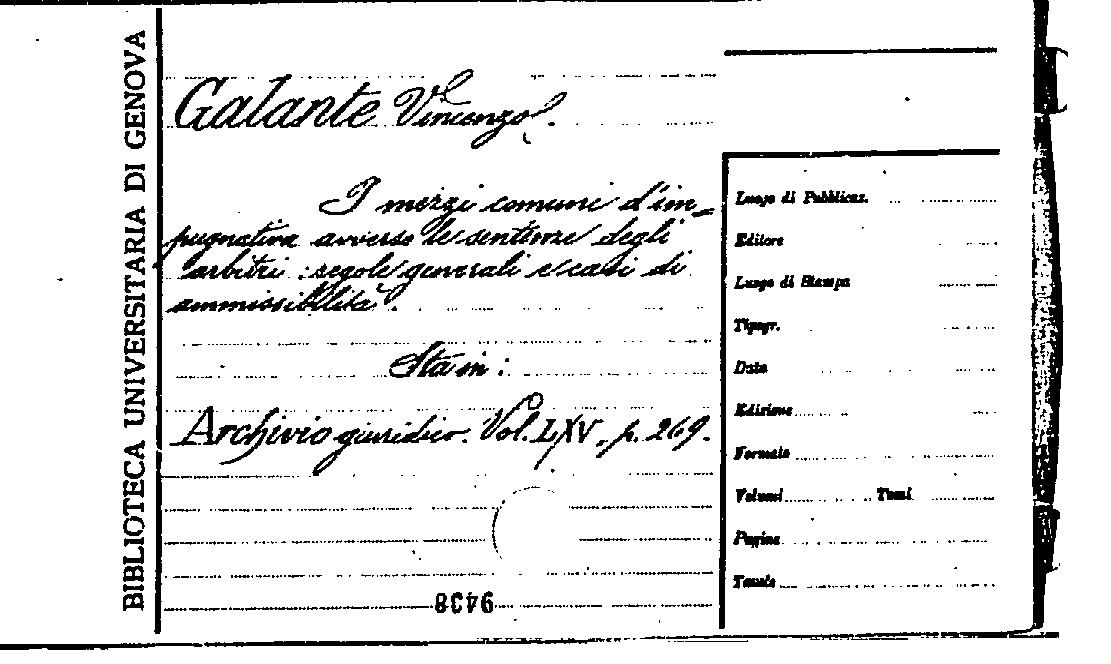 BIBLIOTECA UNIVERSITARIA DI GENOVA
Galante Vincenzo.
I mezzi comuni d'im-
pugnativa avverso le sentenze degli
arbitri: regole generali e casi di
ammissibilità.
Sta in:
Archivio giuridico. Vol. LXV, p. 269.
9438
Luogo di Pubblicaz.
Editore
Luogo di Stampa
Tipogr.
Data
Edizione
Formato
Volumi Tomi
Pagine
Tavole